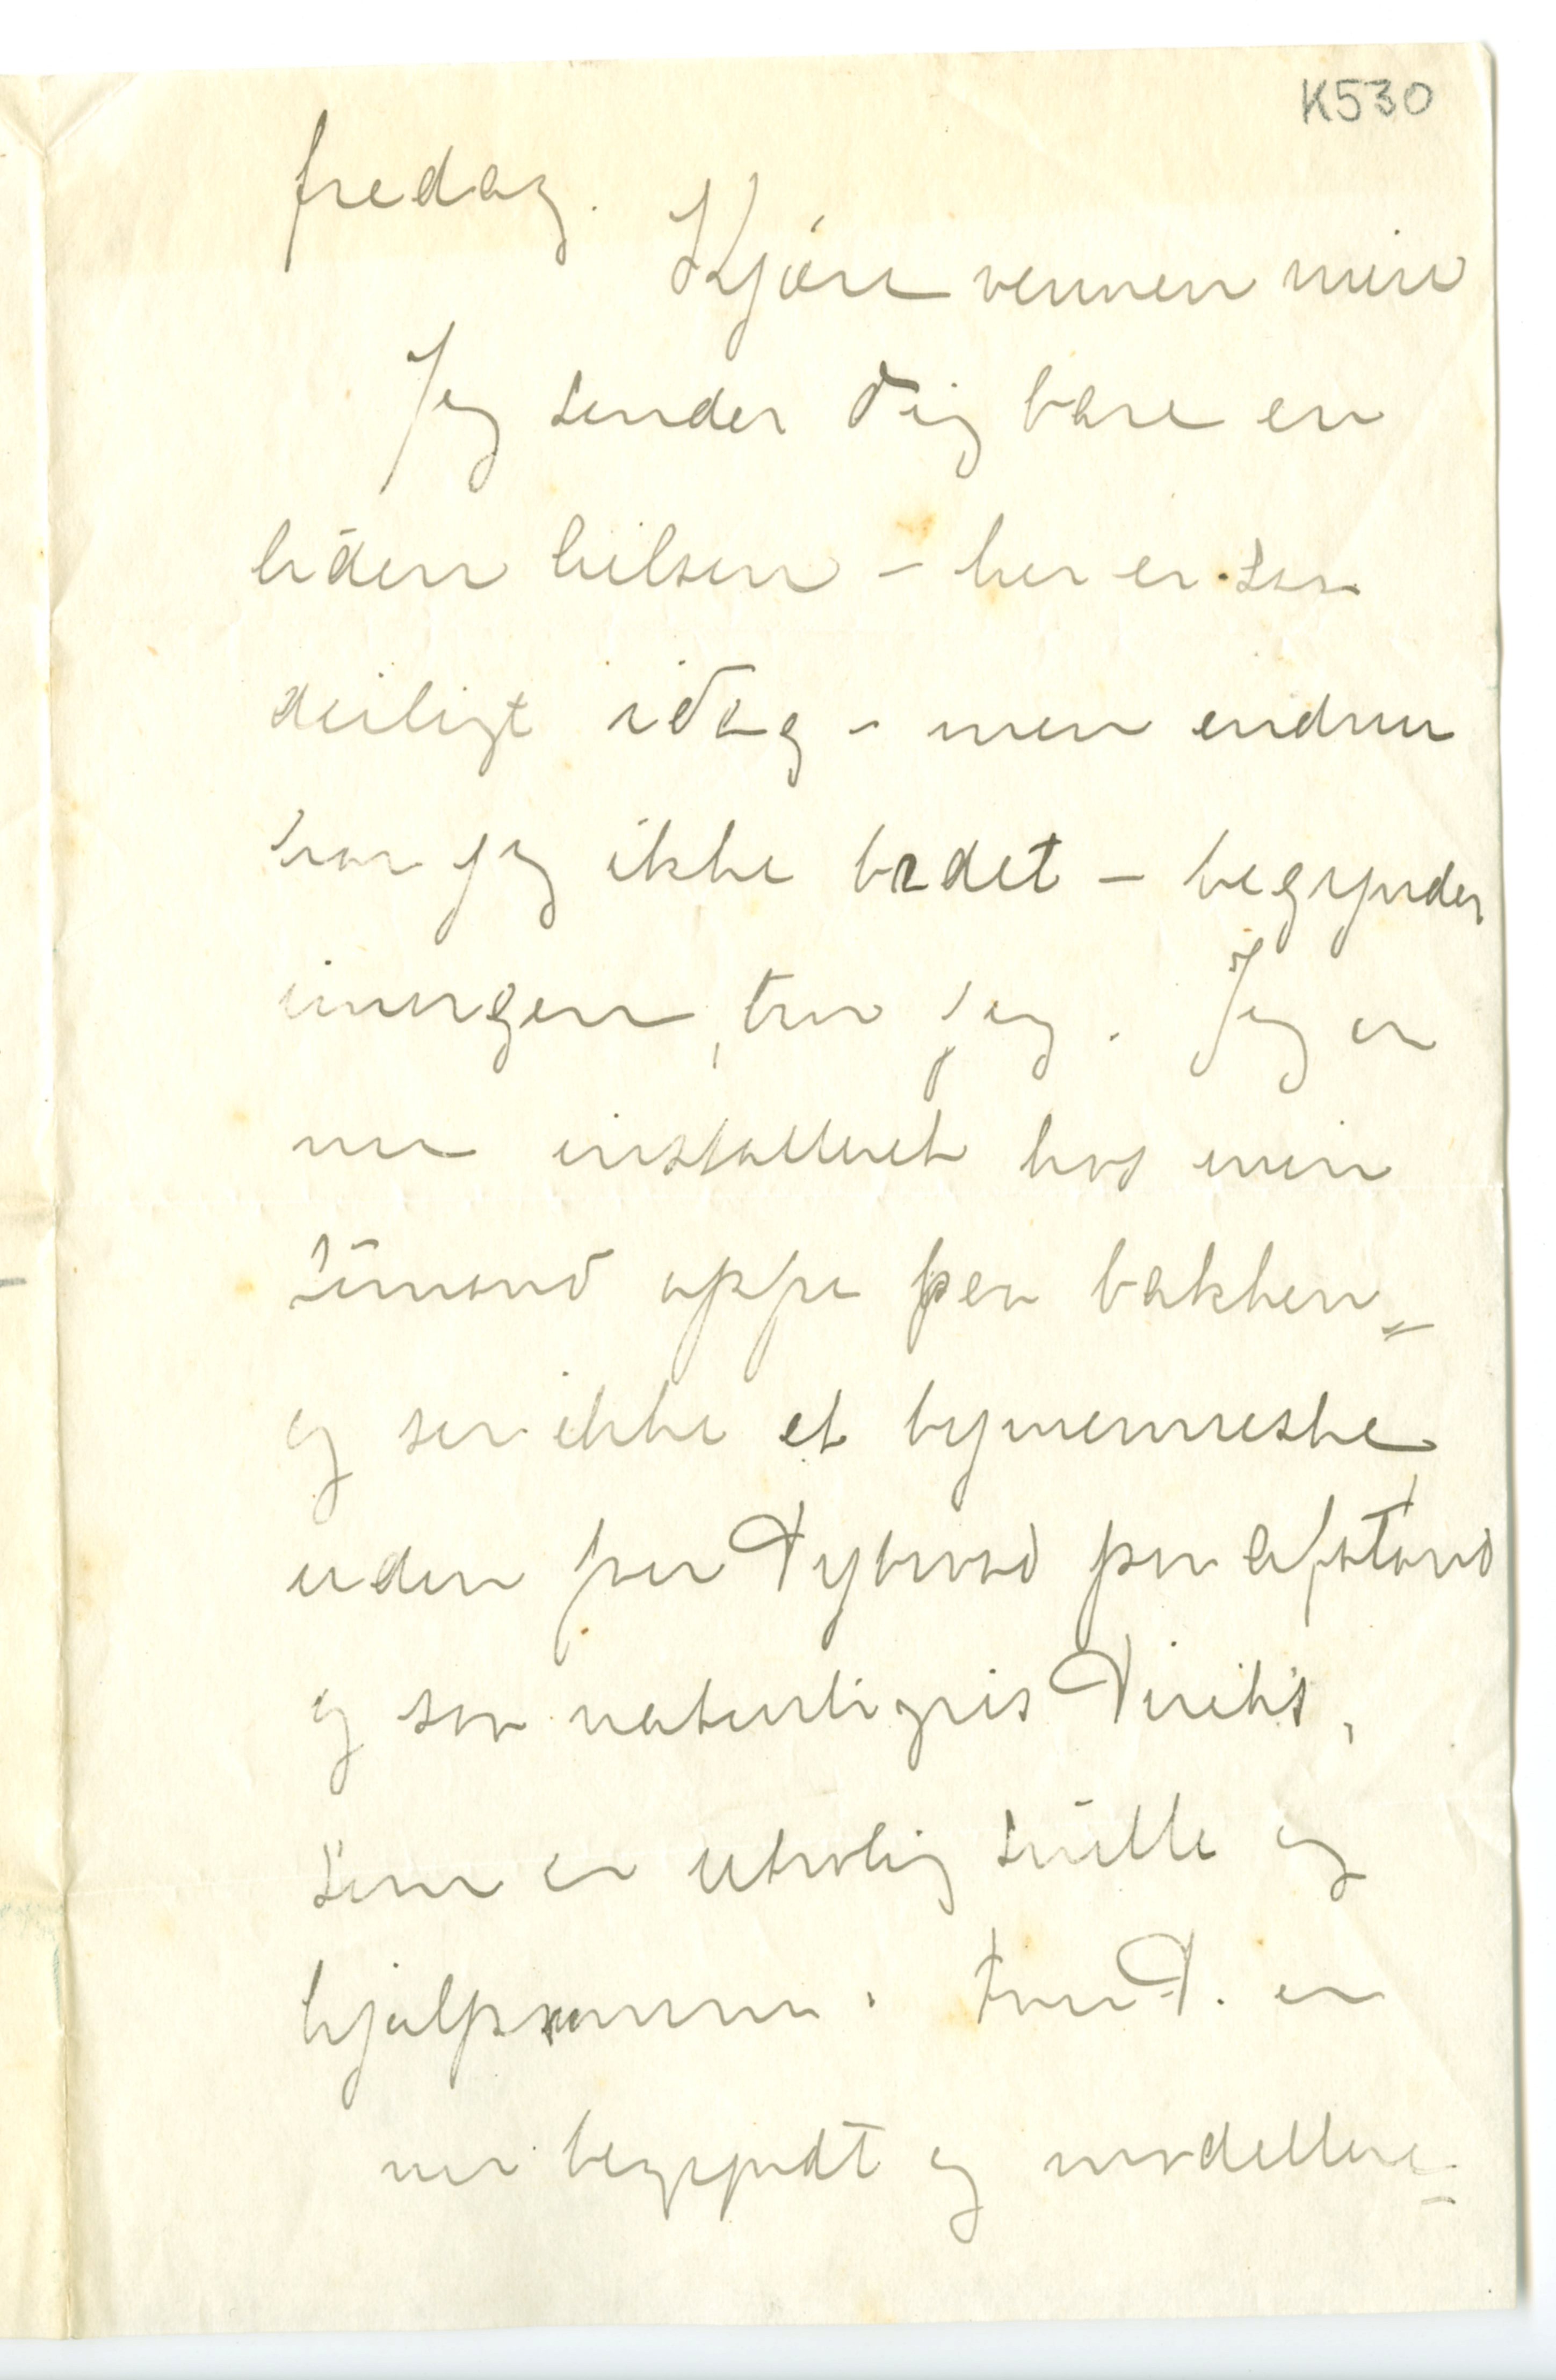 K530
fredag.
Kjære vennen min
Jeg sender dig bare en
liden hilsen – her er saa
deiligt idag – men endnu
har jeg ikke badet – begynder
imorgen, tror jeg. Jeg er
nu installeret hos min
sømand oppe paa bakken –
og ser ikke et bymenneske
uden paa Dybwad paa afstand
og saa naturligvis
som er utrolig snille og
hjælpsomme. Fru D. er
nu begyndt og modellere –